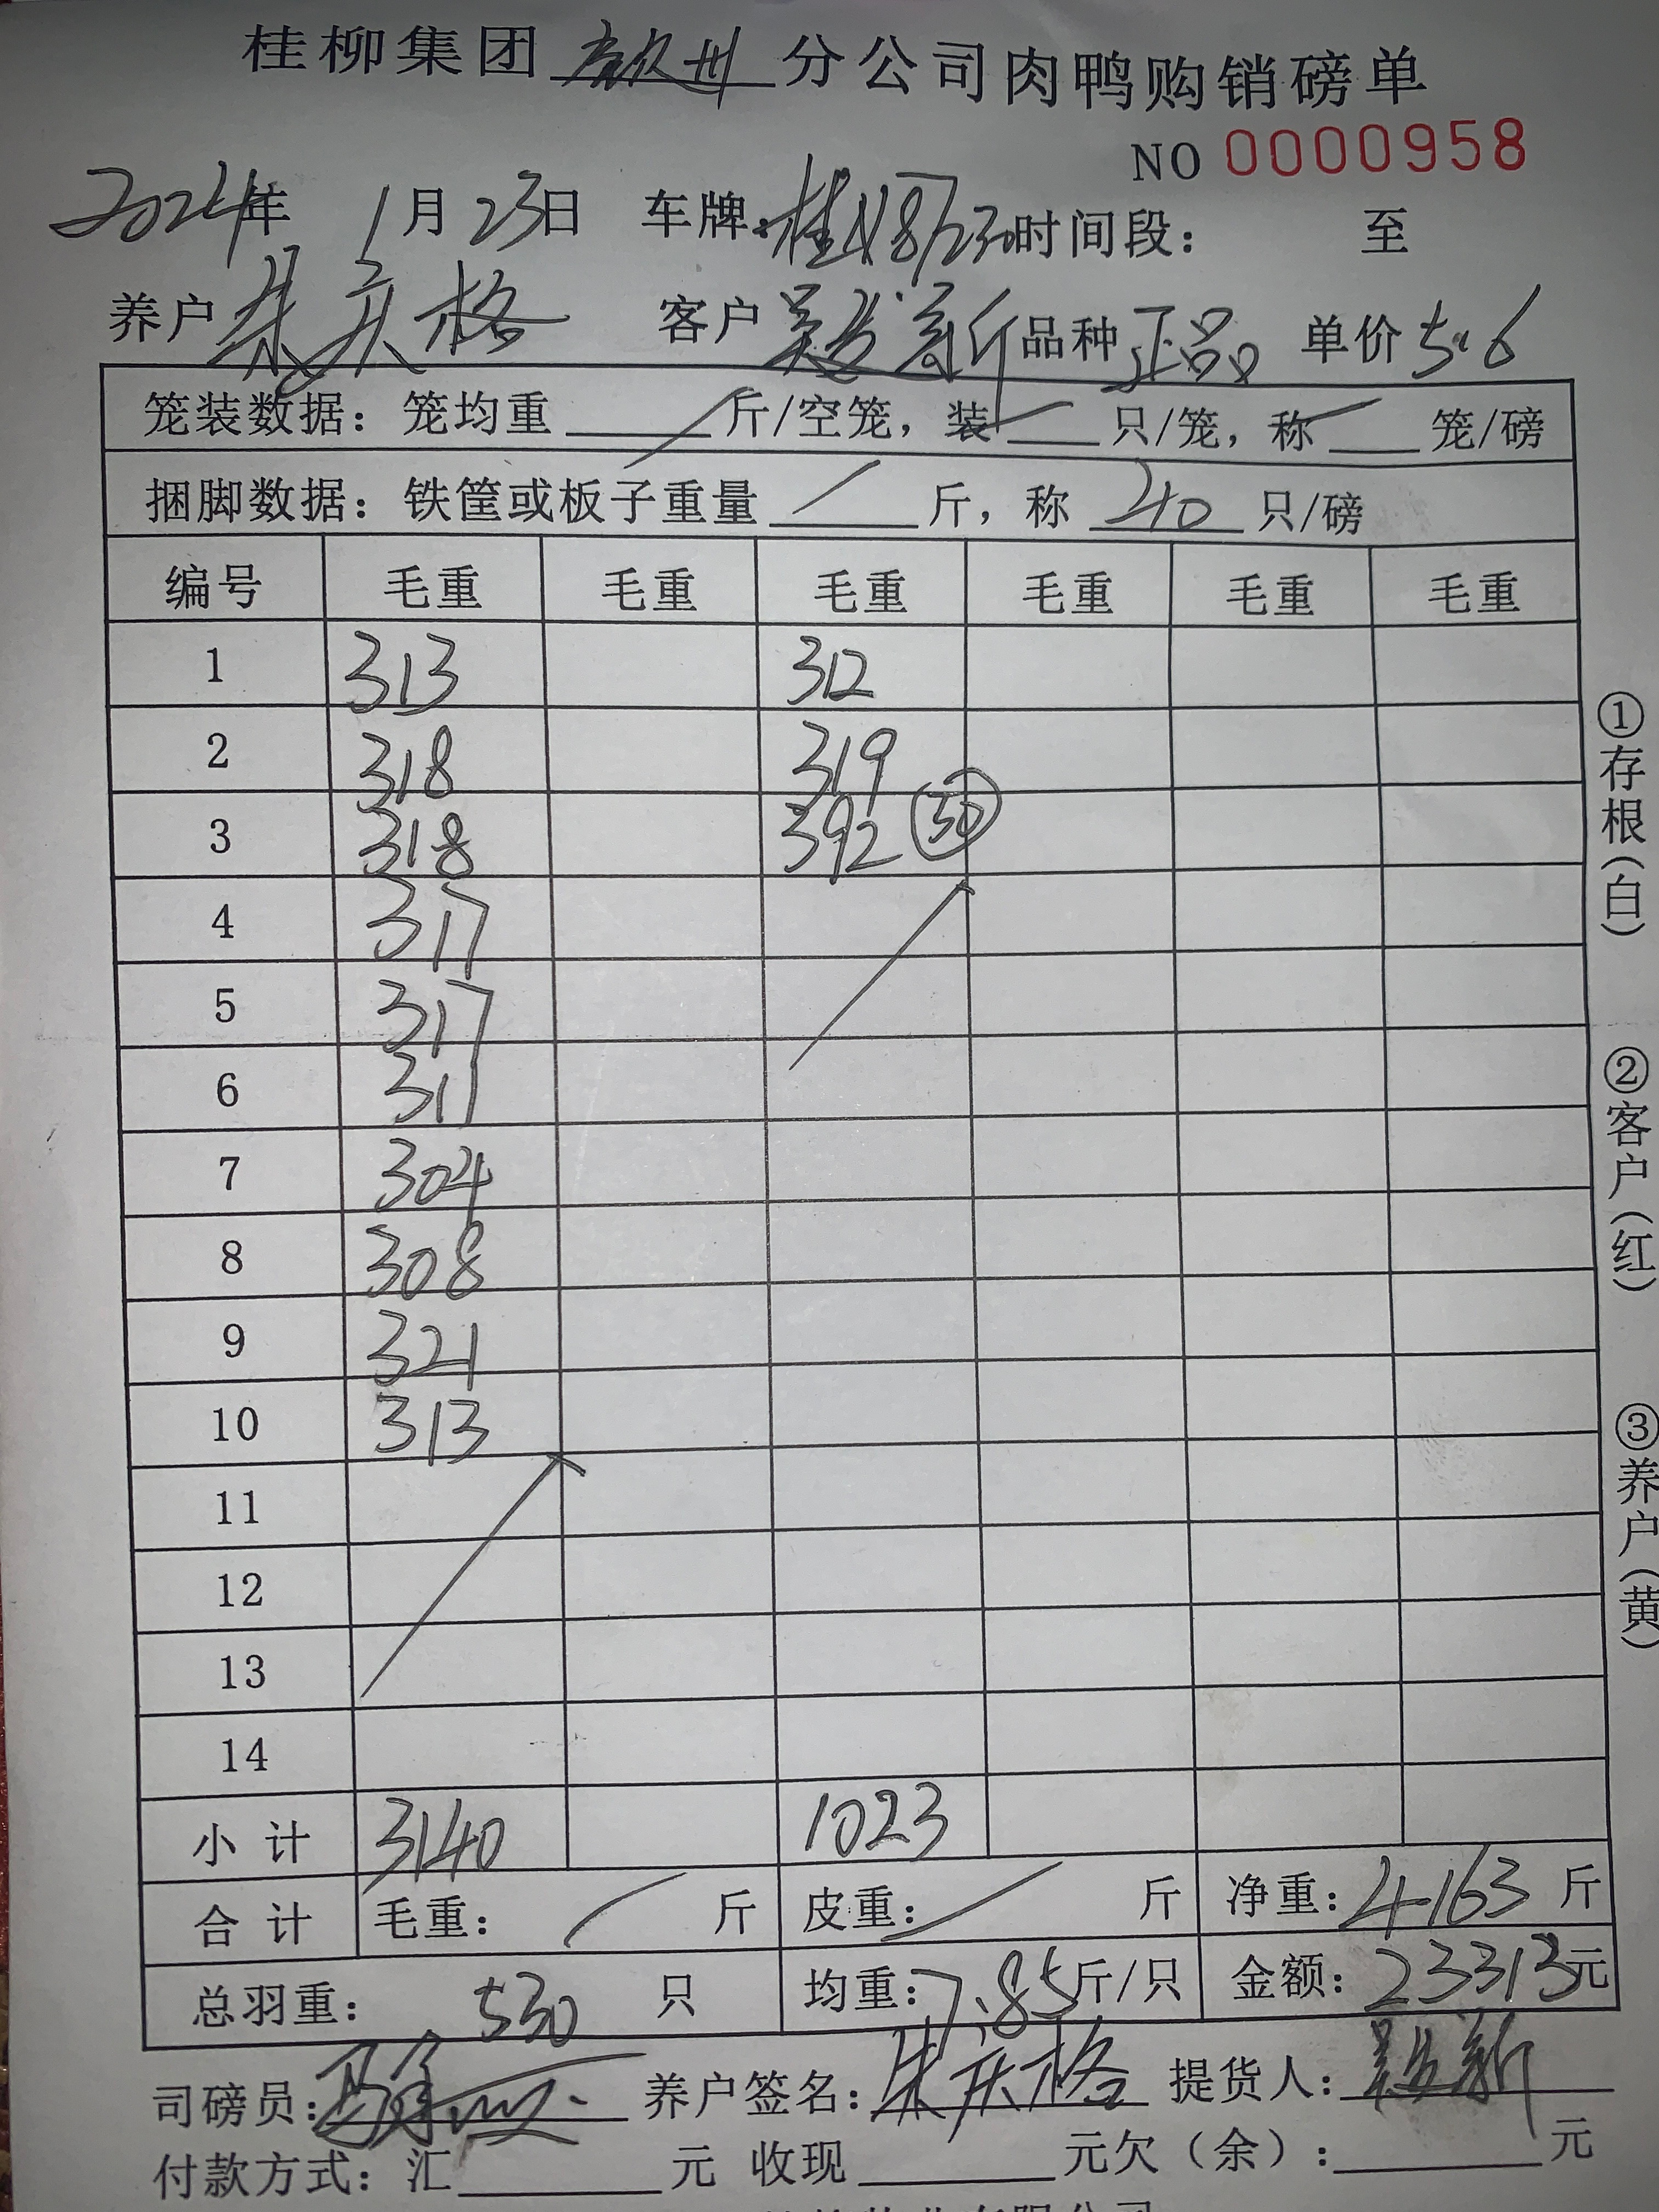 桂柳集团 钦州 分公司肉鸭购销磅单
NO 0000958
2024年 1月23日 车牌: 时间段: 至
养户 朱庆格 客户 吴发新 品种 正品 单价 5.6
笼装数据: 笼均重 / 斤/空笼, 装 / 只/笼, 称 / 笼/磅
捆脚数据: 铁筐或板子重量 / 斤, 称 40 只/磅
编号 毛重 毛重 毛重 毛重 毛重 毛重
1 313 312
2 318 319
3 318 392 50
4 317
5 317
6 311
7 304
8 308
9 321
10 313
11
12
13
14
小计 3140 1023
合计 毛重: / 斤 皮重: / 斤 净重: 4163 斤
总羽重: 530 只 均重: 7.85 斤/只 金额: 23313元
司磅员: 养户签名: 朱庆格 提货人: 吴发新
付款方式: 汇 元 收现 元欠(余): 元
①存根(白) ②客户(红) ③养户(黄)